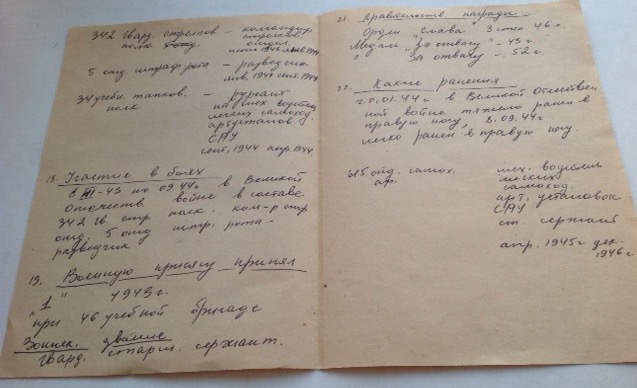 342 гвард. стрелков – командир
полк стрелков.
отдел.
5 отд штраф. рота – разведчик
янв. 1944 сент. 1944
34 учебн. танков. – курсант
полк
мех водител
легких самоход.
артустанов.
САУ
сент. 1944 апр. 1944
18. Участие в боях
с III-43 по 09.44г в Великой
Отечеств войне в составе
342 гв стр. полк. ком-р стр
отд. 5 отд штр. рота –
разведчик
19. Военную присягу принял
"1" 1943г.
при 46 учебной бригаде
Воинск. звание
гвард. старш. сержант.
21. Правительств награды
Орден „Слава" 3 степ. 46г.
Медаль „За отвагу" – 43г.
" За отвагу – 52г.
22. Какие ранения
20.01.44г в Великой Отечествен
ной войне тяжело ранен в
правую ногу, 8.09.44г
легко ранен в правую ногу
315 отд. самох. мех. водитель
ар. легких
самоход.
арт. установок
САУ
ст. сержант
апр. 1945г дек.
1946г.